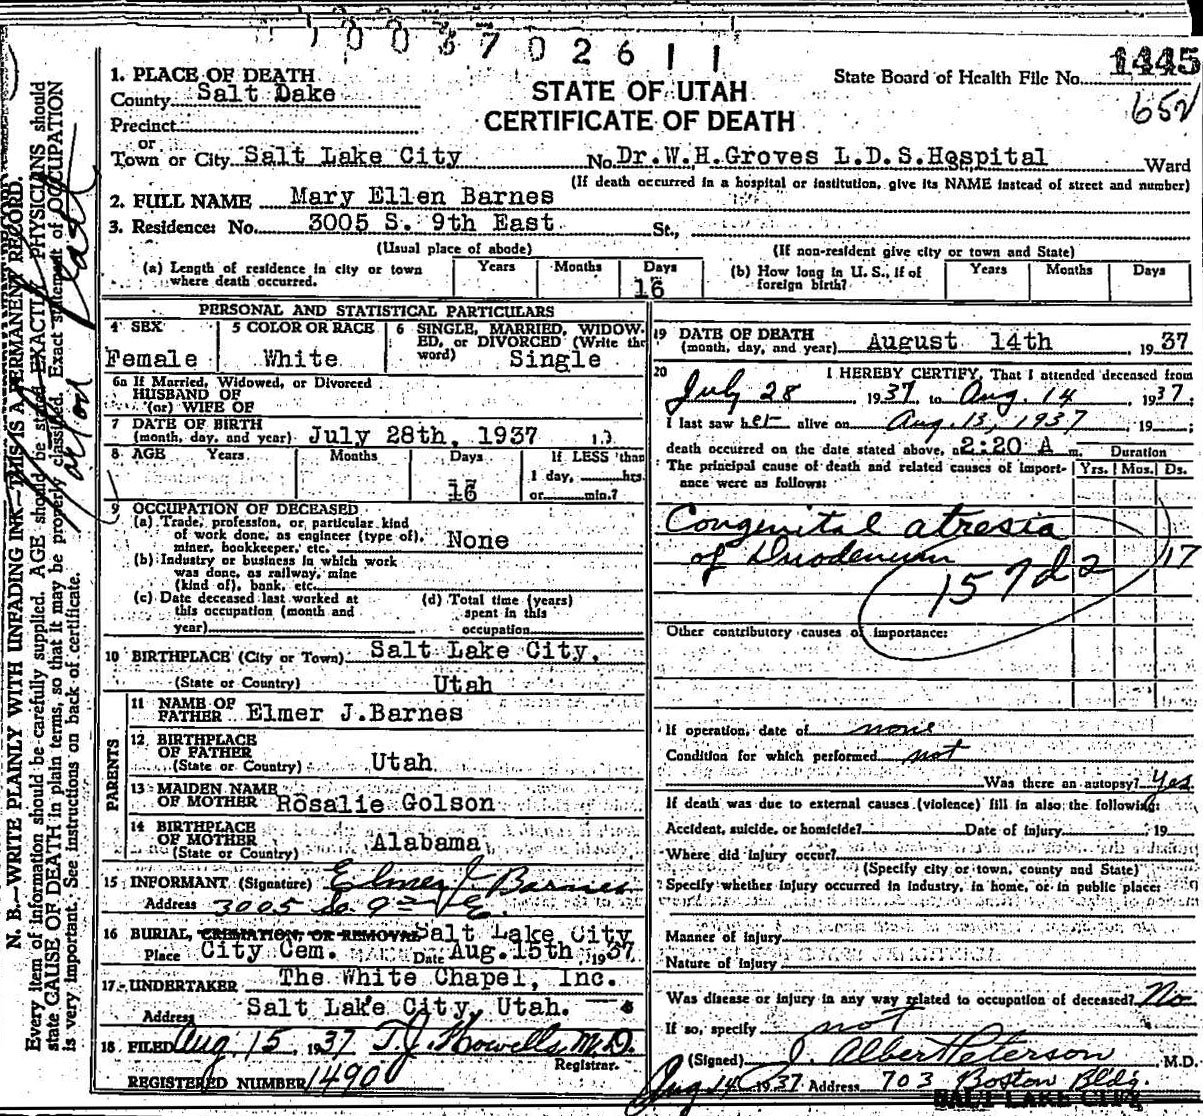 1003702611
1. PLACE OF DEATH
County Salt Dake
STATE OF UTAH
CERTIFICATE OF DEATH
State Board of Health File No. 1445
652
Precinct
or
Town or City Salt Lake City No. Dr.W.H.Groves L.D.S.Hospital Ward
(If death occurred in a hospital or institution, give its NAME instead of street and number)
2. FULL NAME Mary Ellen Barnes
3. Residence: No. 3005 S. 9th East St.,
(Usual place of abode) (If non-resident give city or town and State)
(a) Length of residence in city or town where death occurred. Years Months Days 16
(b) How long in U. S., if of foreign birth? Years Months Days
PERSONAL AND STATISTICAL PARTICULARS
4 SEX Female
5 COLOR OR RACE White
6 SINGLE, MARRIED, WIDOWED, or DIVORCED (Write the word) Single
6a If Married, Widowed, or Divorced
HUSBAND OF
(or) WIFE OF
7 DATE OF BIRTH
(month, day, and year) July 28th, 1937
8 AGE Years Months Days If LESS than
16 1 day, hrs.
or min.?
9 OCCUPATION OF DECEASED
(a) Trade, profession, or particular kind
of work done, as engineer (type of),
miner, bookkeeper, etc. None
(b) Industry or business in which work
was done, as railway, mine
(kind of), bank, etc.
(c) Date deceased last worked at
this occupation (month and
year)
(d) Total time (years)
spent in this
occupation
10 BIRTHPLACE (City or Town) Salt Lake City,
(State or Country) Utah
PARENTS
11 NAME OF
FATHER Elmer J.Barnes
12 BIRTHPLACE
OF FATHER
(State or Country) Utah
13 MAIDEN NAME
OF MOTHER Rosalie Golson
14 BIRTHPLACE
OF MOTHER
(State or Country) Alabama
15 INFORMANT (Signature) Elmer J. Barnes
Address 3005 So 9th E.
16 BURIAL, CREMATION, OR REMOVAL Salt Lake City
Place City Cem. Date Aug.15th, 1937
17 UNDERTAKER The White Chapel, Inc.
Address Salt Lake City, Utah.
18 FILED Aug. 15, 1937 T.J. Howells M.D.
Registrar.
REGISTERED NUMBER 1490
19 DATE OF DEATH
(month, day, and year) August 14th 1937
20 I HEREBY CERTIFY, That I attended deceased from
July 28 1937, to Aug. 14, 1937;
I last saw her alive on Aug. 13, 1937, 19 ;
death occurred on the date stated above, at 2:20 A m.
Duration
The principal cause of death and related causes of importance were as follows: Yrs. Mos. Ds.
Congenital atresia
of Duodenum 17
157d2
Other contributory causes of importance:
If operation, date of none
Condition for which performed not
Was there an autopsy? Yes
If death was due to external causes (violence) fill in also the following:
Accident, suicide, or homicide? Date of injury 19
Where did injury occur?
(Specify city or town, county and State)
Specify whether injury occurred in industry, in home, or in public place:
Manner of injury
Nature of injury
Was disease or injury in any way related to occupation of deceased? No
If so, specify not
(Signed) J. Albert Peterson M.D.
Aug 14 1937 Address 703 Boston Bldg.
SALT LAKE CITY
N. B.—WRITE PLAINLY WITH UNFADING INK—THIS IS A PERMANENT RECORD.
Every item of information should be carefully supplied. AGE should be stated EXACTLY. PHYSICIANS should
state CAUSE OF DEATH in plain terms, so that it may be properly classified. Exact statement of OCCUPATION
is very important. See instructions on back of certificate.